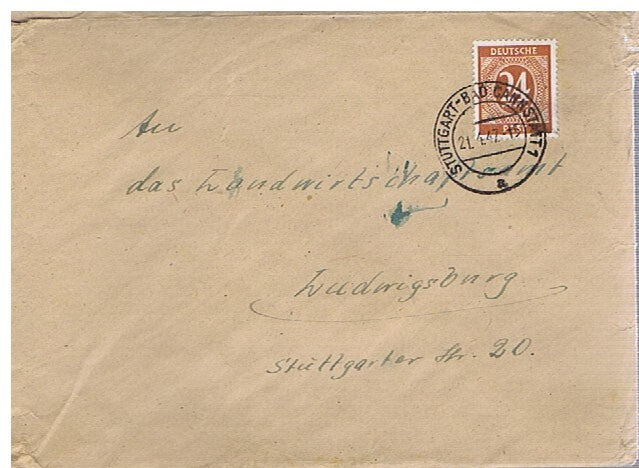 DEUTSCHE
24
STUTTGART-BAD CANNSTATT 1
a
An
das Landwirtschaftsamt
Ludwigsburg
Stuttgarter Str. 20.